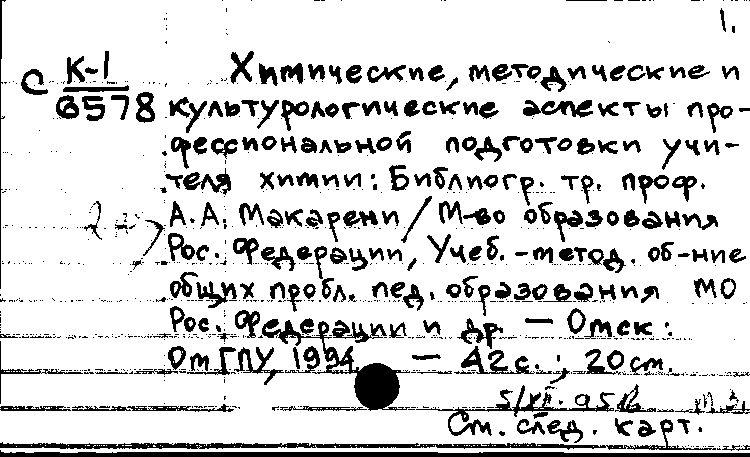 1.
С К-1
6578
Химические, методические и
культурологические аспекты про-
фессиональной подготовки учи-
теля химии: Библиогр. тр. проф.
А.А. Макарени / М-во образования
Рос. Федерации, Учеб.-метод. об-ние
общих пробл. пед. образования МО
Рос. Федерации и др. — Омск:
ОмГПУ, 1994. — 42 с.; 20 см.
5/XII.95
См. след. карт.